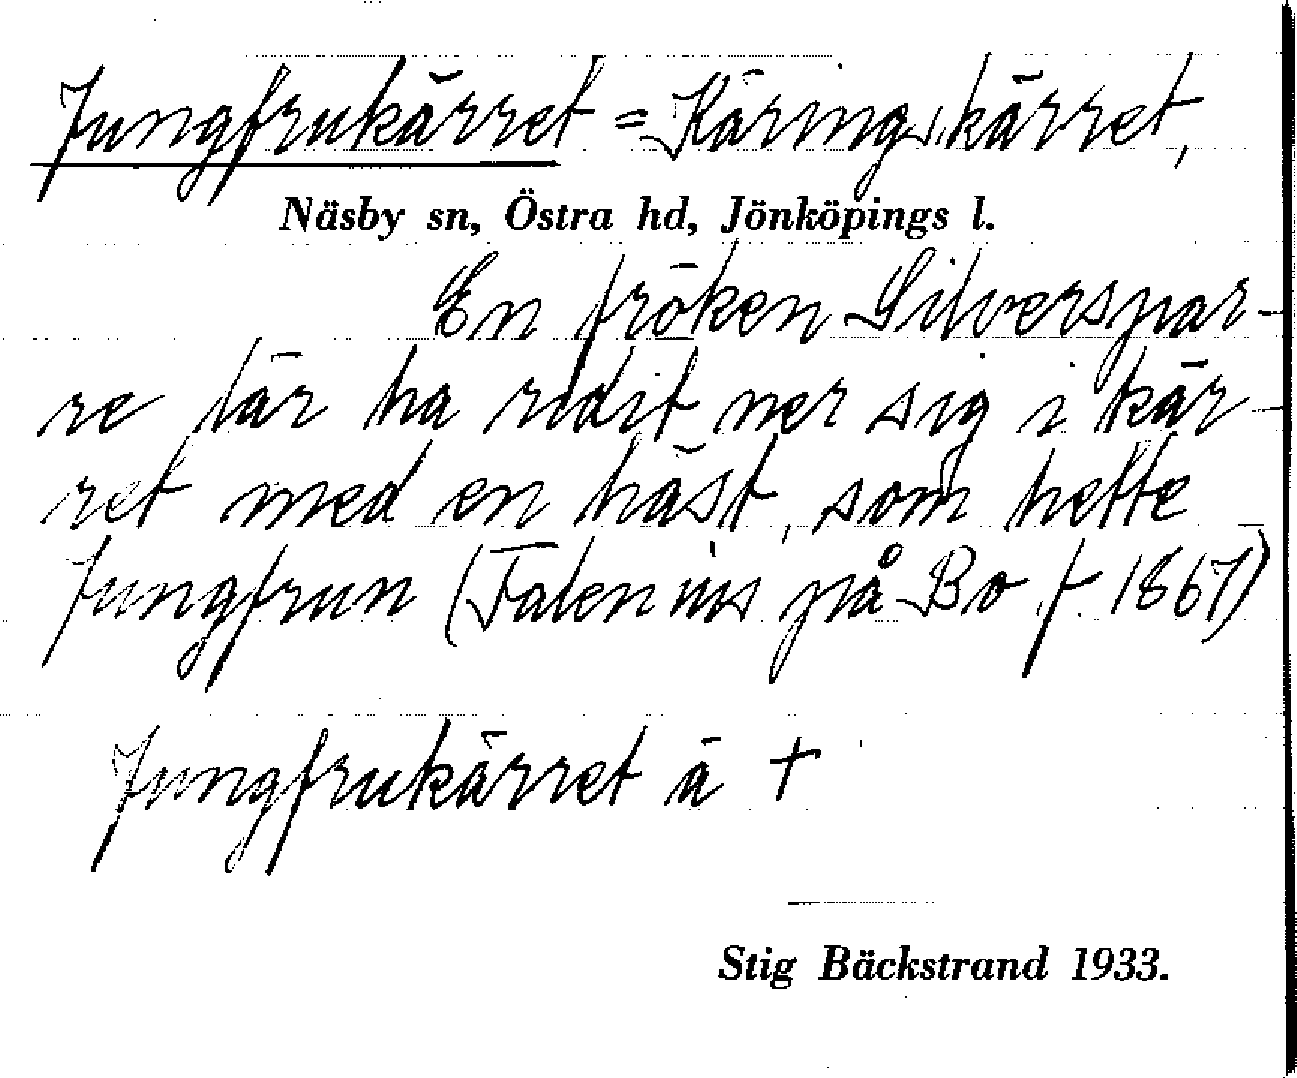 Jungfrukärret = Käringakärret,
Näsby sn, Östra hd, Jönköpings l.
En fröken Silverspar-
re lär ha ridit ner sig i kär-
ret med en häst, som hette
Jungfrun (Falenius på Bo f. 1867)
Jungfrukärret ä †
Stig Bäckstrand 1933.